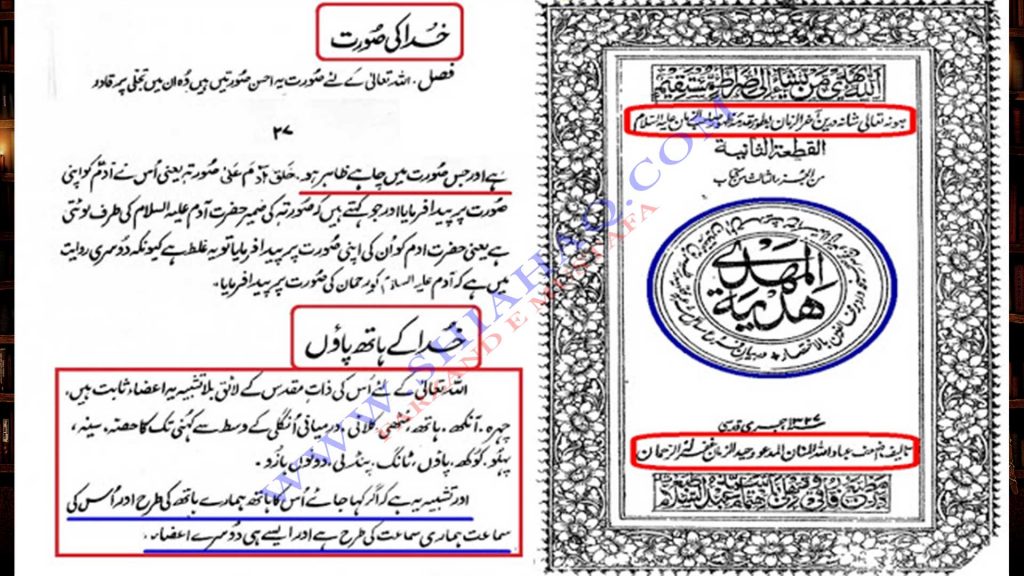 خُدا کی صُورت
فصل ۔ اللہ تعالیٰ کے لئے صُورت یہ احسن صُورتیں ہیں وُہ ان میں تجلی پر قادر و
۲۷
ہے اور جس صُورت میں چاہے ظاہر ہو ۔ خلق آدم علیٰ صُورتہٖ یعنی اُس نے آدم کو اپنی
صُورت پر پیدا فرمایا اور جو کہتے ہیں کہ صُورتہٖ کی ضمیر حضرت آدم علیہ السلام کی طرف لوٹتی
ہے یعنی حضرت آدم کو اُن کی اپنی صُورت پر پیدا فرمایا تو یہ غلط ہے کیونکہ دُوسری روایت
میں ہے کہ آدم علیہ السلام کو رحمان کی صُورت پر پیدا فرمایا ۔
خُدا کے ہاتھ پاؤں
اللہ تعالیٰ کے لئے اُس کی ذاتِ مقدس کے لائق بلا تشبیہ یہ اعضاء ثابت ہیں ،
چہرہ ، آنکھ ، ہاتھ ، مٹھی ، کلائی ، درمیانی اُنگلی کے وسط سے کہنی تک کا حصّہ ، سینہ ،
پہلُو ، کوکھ ، پاؤں ، ٹانگ ، پنڈلی ، دونوں بازُو ۔
اور تشبیہ یہ ہے کہ اگر کہا جائے اُس کا ہاتھ ہمارے ہاتھ کی طرح اور اُس کی
سماعت ہماری سماعت کی طرح ہے اور ایسے ہی دُوسرے اعضاء ۔
اللہ یھدی من یشاء الی صراط مستقیم
القطعة الثانية
هدية المهدي
۱۳۲۷ ہجری قدسی
WWW.SHIAHAQ.COM
FARZAND E MUSTAFA